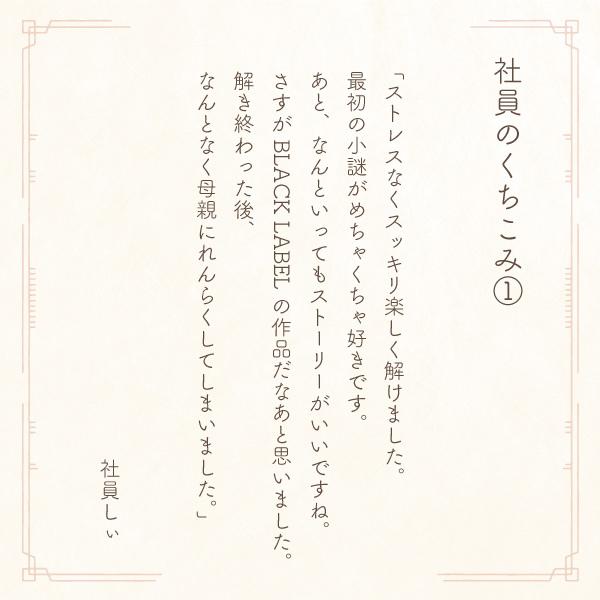 社員のくちこみ①
「ストレスなくスッキリ楽しく解けました。
最初の小謎がめちゃくちゃ好きです。
あと、なんといってもストーリーがいいですね。
さすが BLACK LABEL の作品だなあと思いました。
解き終わった後、
なんとなく母親にれんらくしてしまいました。」
社員しぃ